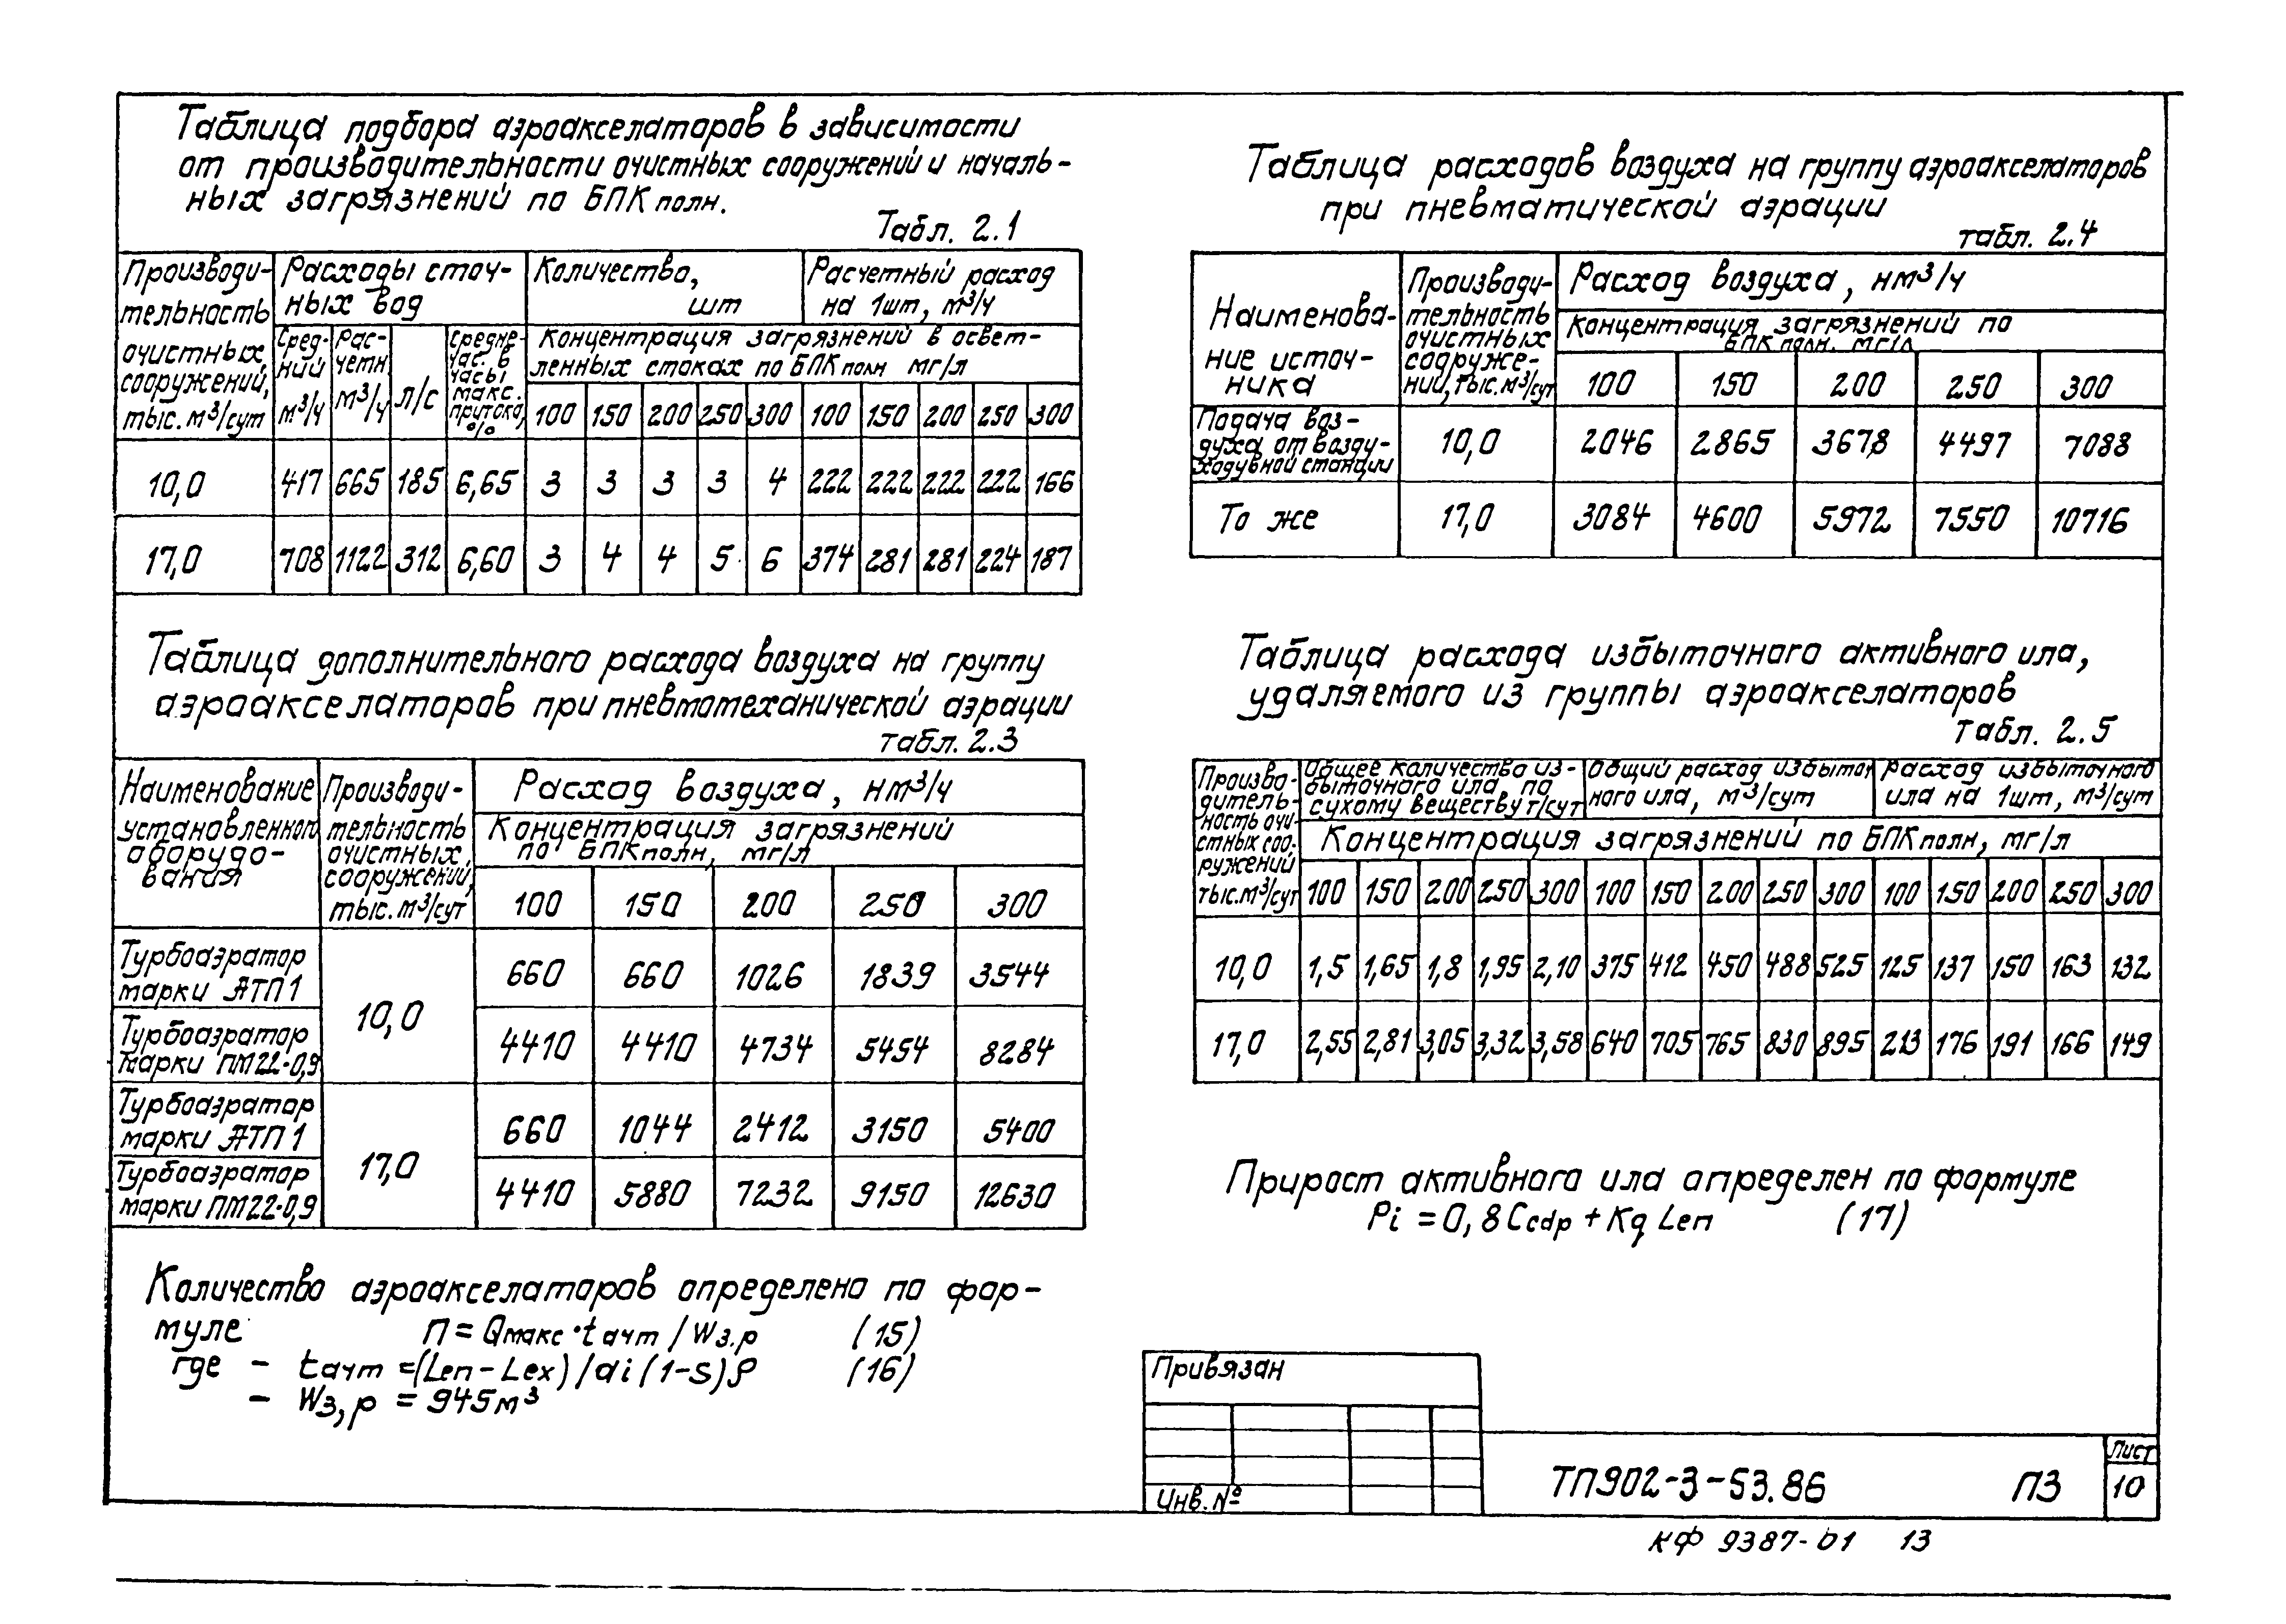 Таблица подбора аэроакселаторов в зависимости
от производительности очистных сооружений и началь-
ных загрязнений по БПК полн.
Табл. 2.1
Производи-
тельность
очистных
сооружений,
тыс. м³/сут
Расходы сточ-
ных вод
Количество,
шт
Расчетный расход
на 1шт, м³/ч
Сред-
ний
м³/ч
Рас-
четн
м³/ч
л/с
средне-
час. в
часы
макс.
притока,
%
Концентрация загрязнений в освет-
ленных стоках по БПК полн мг/л
100 150 200 250 300 100 150 200 250 300
10,0 417 665 185 6,65 3 3 3 3 4 222 222 222 222 166
17,0 708 1122 312 6,60 3 4 4 5 6 374 281 281 224 187
Таблица дополнительного расхода воздуха на группу
аэроакселаторов при пневмомеханической аэрации
табл. 2.3
Наименование
установленного
оборудо-
вания
Производи-
тельность
очистных
сооружений,
тыс. м³/сут
Расход воздуха, нм³/ч
Концентрация загрязнений
по БПК полн, мг/л
100 150 200 250 300
Турбоаэратор
марки АТП1
10,0
660 660 1026 1839 3544
Турбоаэратор
марки ПМ22-0,9
4410 4410 4734 5454 8284
Турбоаэратор
марки АТП1
17,0
660 1044 2412 3150 5400
Турбоаэратор
марки ПМ22-0,9
4410 5880 7232 9150 12630
Количество аэроакселаторов определено по фор-
муле n = Qмакс · tачт / Wз.р (15)
где - tачт = (Len - Lex) / ai (1-s) ρ (16)
- Wз,р = 945м³
Таблица расходов воздуха на группу аэроакселаторов
при пневматической аэрации
табл. 2.4
Наименова-
ние источ-
ника
Производи-
тельность
очистных
сооруже-
ний, тыс. м³/сут
Расход воздуха, нм³/ч
Концентрация загрязнений по
БПК полн. мг/л
100 150 200 250 300
Подача воз-
духа от возду-
ходувной станции
10,0 2046 2865 3678 4497 7088
То же 17,0 3084 4600 5972 7550 10716
Таблица расхода избыточного активного ила,
удаляемого из группы аэроакселаторов
табл. 2.5
Произво-
дитель-
ность очи-
стных соо-
ружений
тыс. м³/сут
Общее количество из-
быточного ила по
сухому веществу т/сут
Общий расход избыточ
ного ила, м³/сут
Расход избыточного
ила на 1шт, м³/сут
Концентрация загрязнений по БПК полн, мг/л
100 150 200 250 300 100 150 200 250 300 100 150 200 250 300
10,0 1,5 1,65 1,8 1,95 2,10 375 412 450 488 525 125 137 150 163 132
17,0 2,55 2,81 3,05 3,32 3,58 640 705 765 830 895 213 176 191 166 149
Прирост активного ила определен по формуле
Pi = 0,8 Ccdp + Kq Len (17)
Привязан
Инв. №
ТП902-3-53.86 ПЗ
Лист
10
КФ 9387-01 13